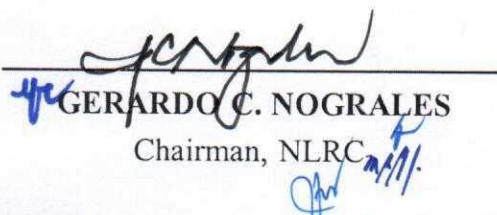 GERARDO C. NOGRALES
Chairman, NLRC